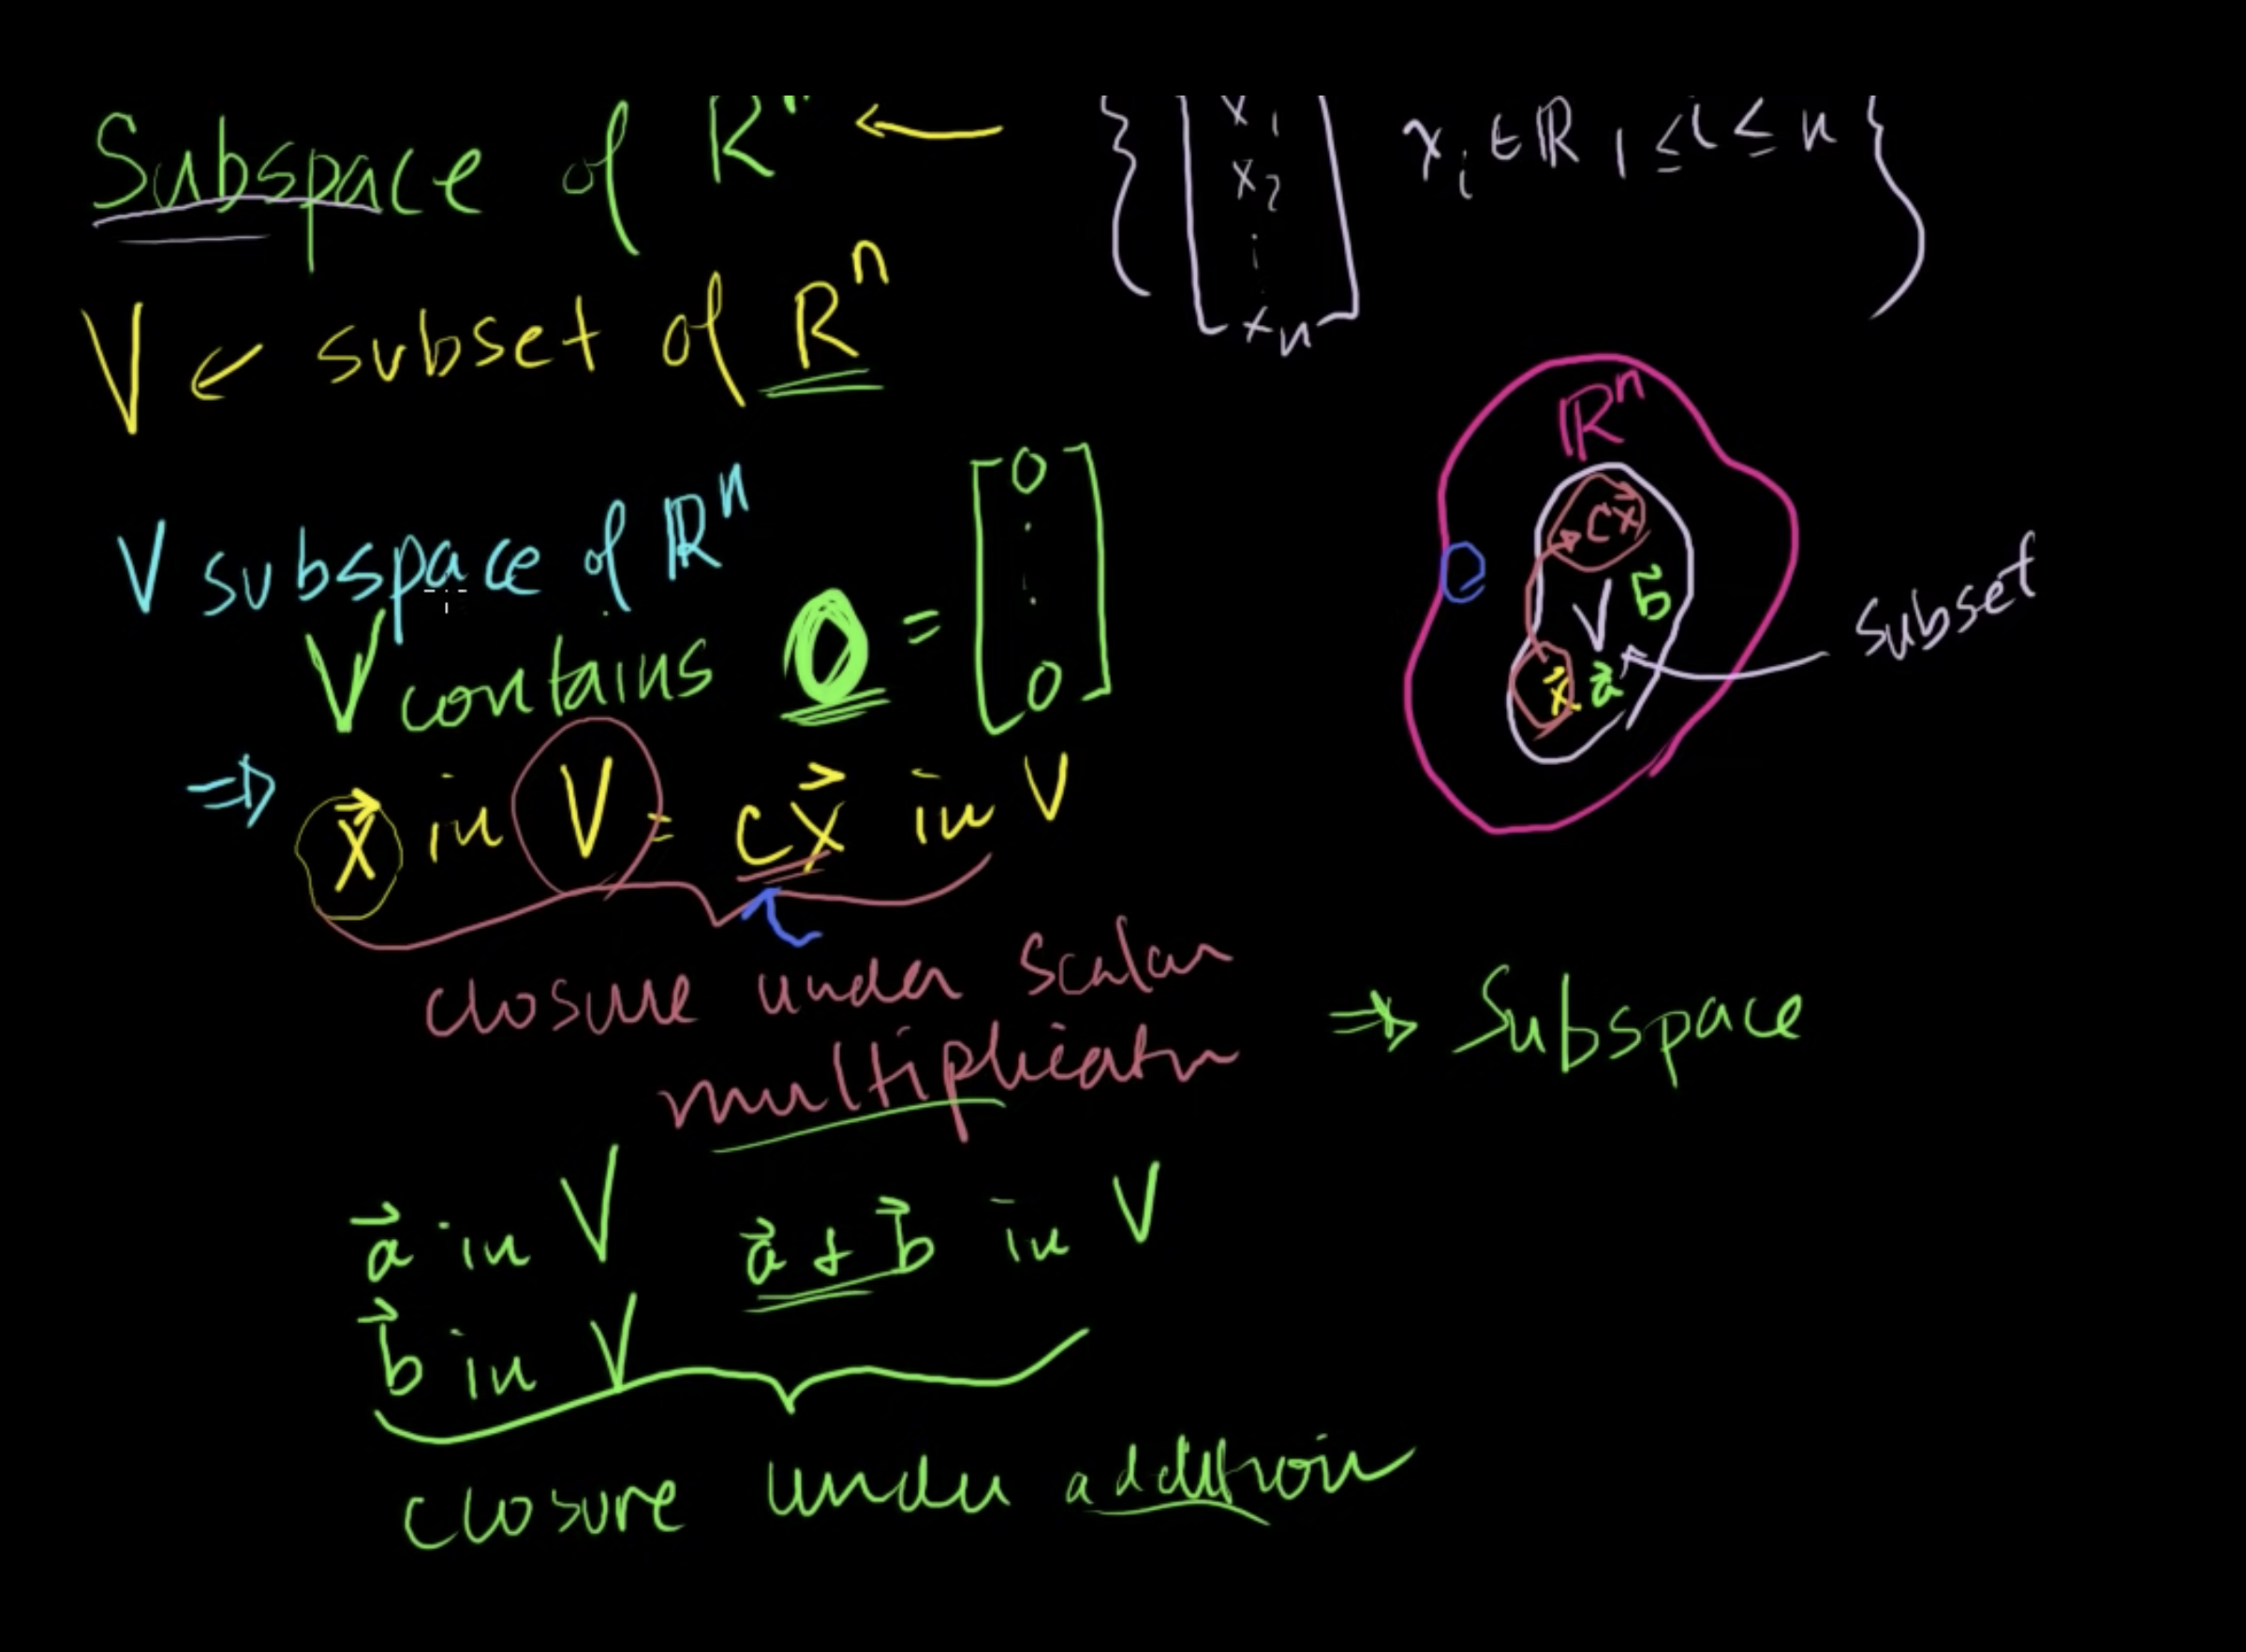 Subspace of Rⁿ ← { [ x₁ x₂ ⋮ xₙ ] xᵢ ∈ ℝ 1 ≤ i ≤ n }
V ← subset of Rⁿ
V subspace of ℝⁿ
V contains 0 = [ 0 ⋮ 0 ]
⇒ x⃗ in V = cx⃗ in V
closure under scalar
multiplicatn
⇒ Subspace
a⃗ in V a⃗ + b⃗ in V
b⃗ in V
closure under addition
ℝⁿ
cx⃗
V b⃗
x⃗ a⃗
subset